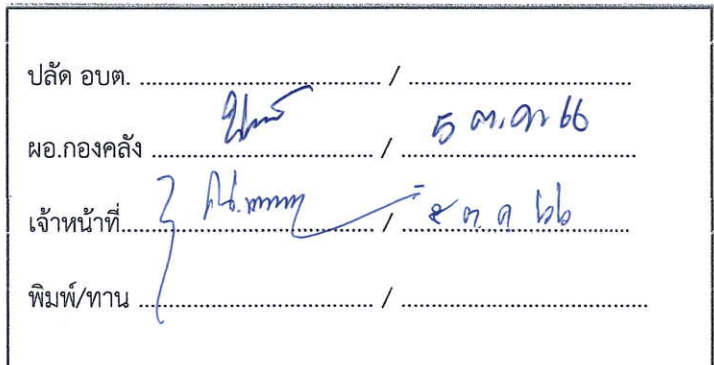 ปลัด อบต. ........................................ / .....................................
ผอ.กองคลัง ...................................... / 5 ต.ค. 66
เจ้าหน้าที่.......................................... / ๕ ต.ค ๖๖
พิมพ์/ทาน ........................................ / .........................................